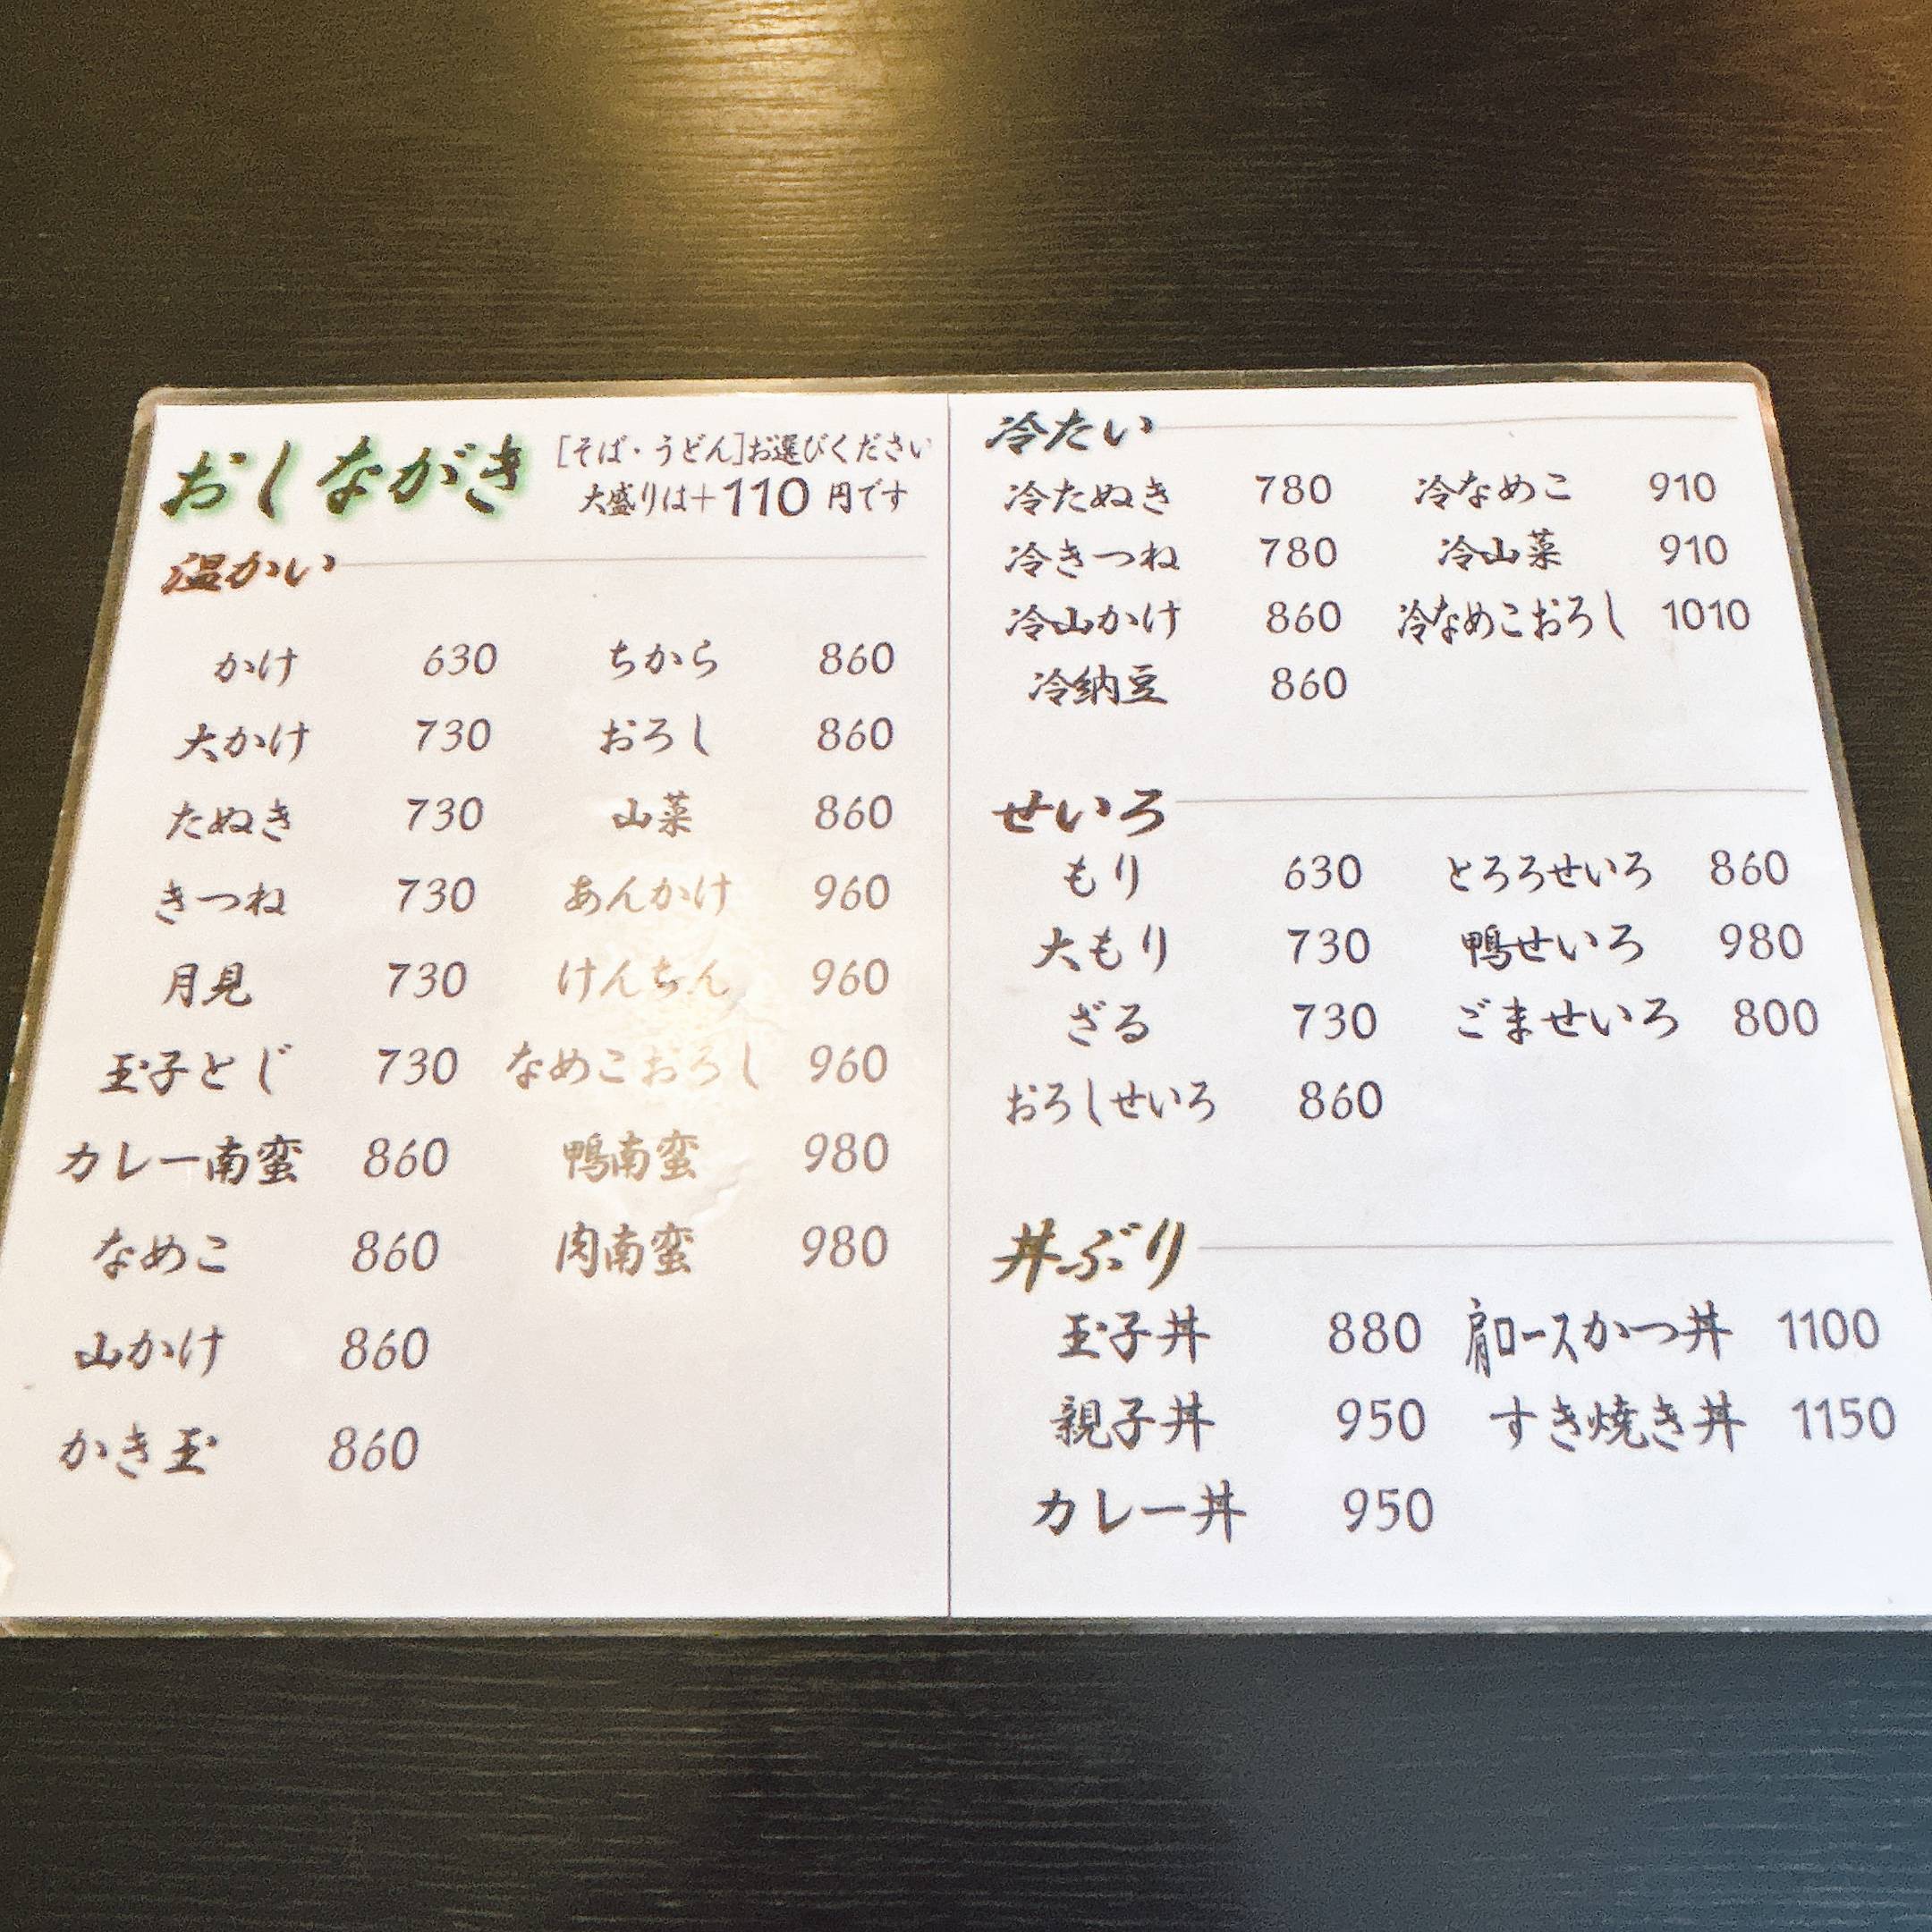 おしながき
[そば・うどん]お選びください
大盛りは+110円です
温かい
かけ 630 ちから 860
大かけ 730 おろし 860
たぬき 730 山菜 860
きつね 730 あんかけ 960
月見 730 けんちん 960
玉子とじ 730 なめこおろし 960
カレー南蛮 860 鴨南蛮 980
なめこ 860 肉南蛮 980
山かけ 860
かき玉 860
冷たい
冷たぬき 780 冷なめこ 910
冷きつね 780 冷山菜 910
冷山かけ 860 冷なめこおろし 1010
冷納豆 860
せいろ
もり 630 とろろせいろ 860
大もり 730 鴨せいろ 980
ざる 730 ごませいろ 800
おろしせいろ 860
丼ぶり
玉子丼 880 肩ロースかつ丼 1100
親子丼 950 すき焼き丼 1150
カレー丼 950